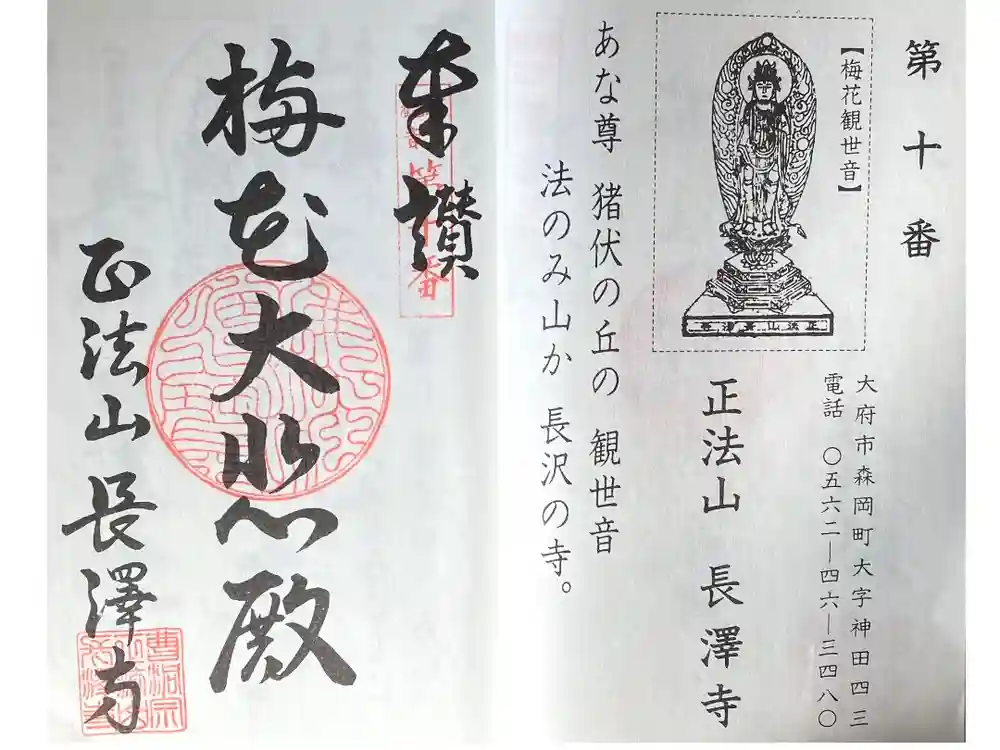 第十番
【梅花観世音】
正法山長澤寺
大府市森岡町大字神田四三
電話 〇五六二―四六―三四八〇
正法山 長澤寺
あな尊 猪伏の丘の 観世音
法のみ山か 長沢の寺。
奉讃
第十番
梅花大悲殿
正法山長澤寺